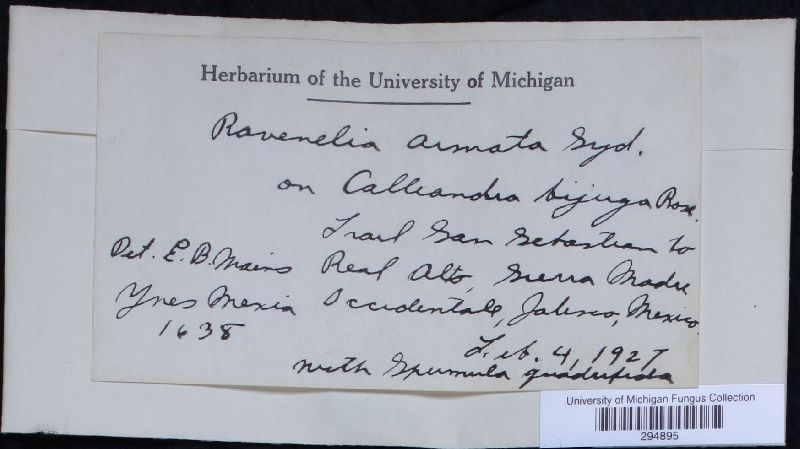 Herbarium of the University of Michigan
Ravenelia armata Syd.
on Calliandra bijuga Rose.
Trail San Sebastian to
Det. E. B. Mains Real Alto, Sierra Madre
Ynes Mexia Occidentale, Jalisco, Mexico.
1638
Feb. 4, 1927
with Spumula quadrifida
University of Michigan Fungus Collection
294895